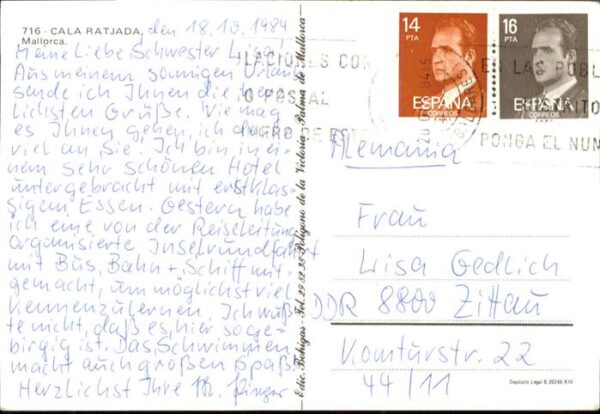 716 - CALA RATJADA, den 18.10.1984
Mallorca.
Meine Liebe Schwester Lisa!
Aus meinem sonnigen Urlaub
sende ich Ihnen die herz-
lichsten Grüße. Wie mag
es Ihnen gehen, ich denke
viel an Sie. Ich bin in ei-
nem sehr schönen Hotel
untergebracht mit erstklas-
sigem Essen. Gestern habe
ich eine von der Reiseleitung
organisierte Inselrundfahrt
mit Bus, Bahn + Schiff mit-
gemacht, um möglichst viel
kennenzulernen. Ich wuß-
te nicht, daß es hier so ge-
birgig ist. Das Schwimmen
macht auch großen Spaß.
Herzlichst Ihre M.
Edic. Bohigas - Tel. 29 32 35 Polígono de la Victoria - Palma de Mallorca
14
PTA
ESPAÑA
CORREOS
16
PTA
ESPAÑA
CORREOS
LACIONES CON
O POSTAL
PONGA EL NUM
Alemania
Frau
Lisa Gedlich
DDR 8800 Zittau
Komturstr. 22
44/11
Depósito Legal B. 20246-XIV